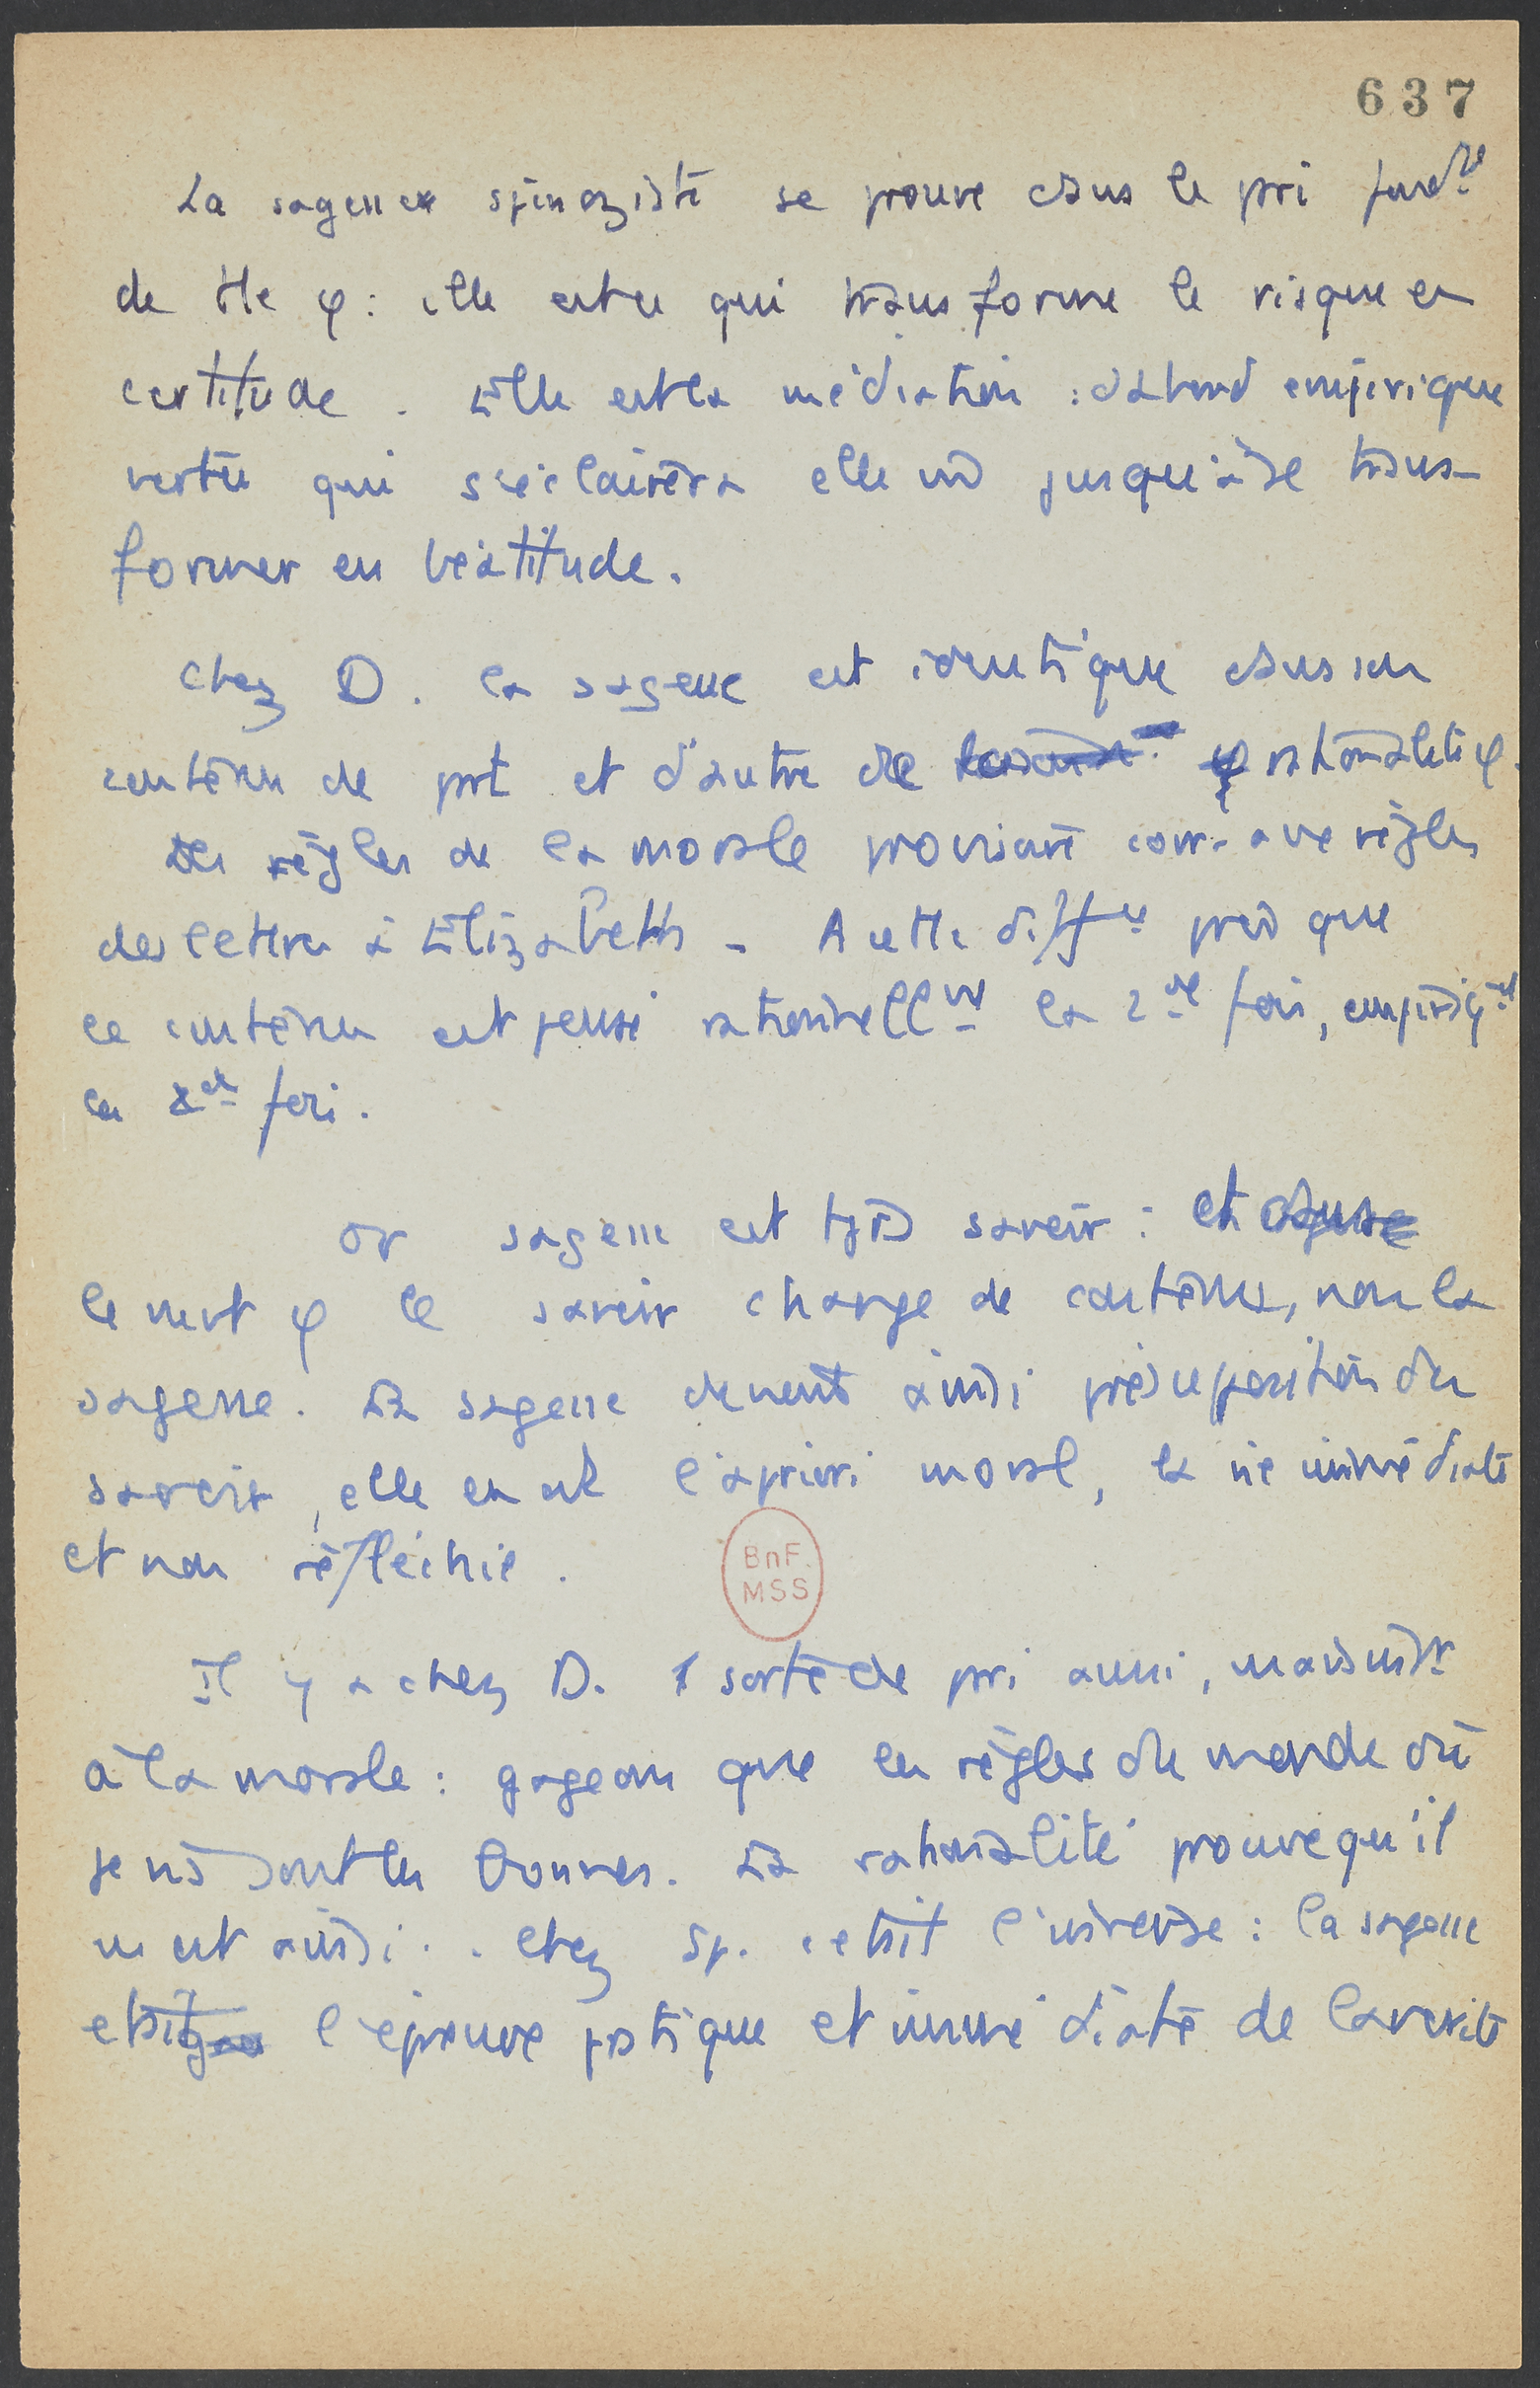 637
La sagesse spinoziste se prouve dans le pari fond.al
de tte φ : elle est ce qui transforme le risque en
certitude. Elle est la médiation : d'abord empirique
vertu qui s'éclairera elle va jusqu'à se trans-
former en béatitude.
Chez D. la sagesse est identique dans son
contenu de part et d'autre de rationalité φ.
Les règles de la morale provisoire corr. aux règles
des lettres à Elizabeth - A cette diff.ce près que
ce contenu est pensé rationnellmt la 2de fois, empiriqmt
la fois.
Or sagesse est tjrs savoir : et
le mvt φ le savoir change de contenu, non la
sagesse. La sagesse devient ainsi présupposition du
savoir, elle en est l'apriori moral, la vie immédiate
et non réfléchie.
BnF
MSS
Il y a chez D. 1 sorte de pari aussi, mais
à la morale : gageons que les règles du monde où
je vis sont les bonnes. La rationalité prouve qu'il
en est ainsi. Chez Sp. c'était l'inverse : la sagesse
était l'épreuve pratique et immédiate de la vérité